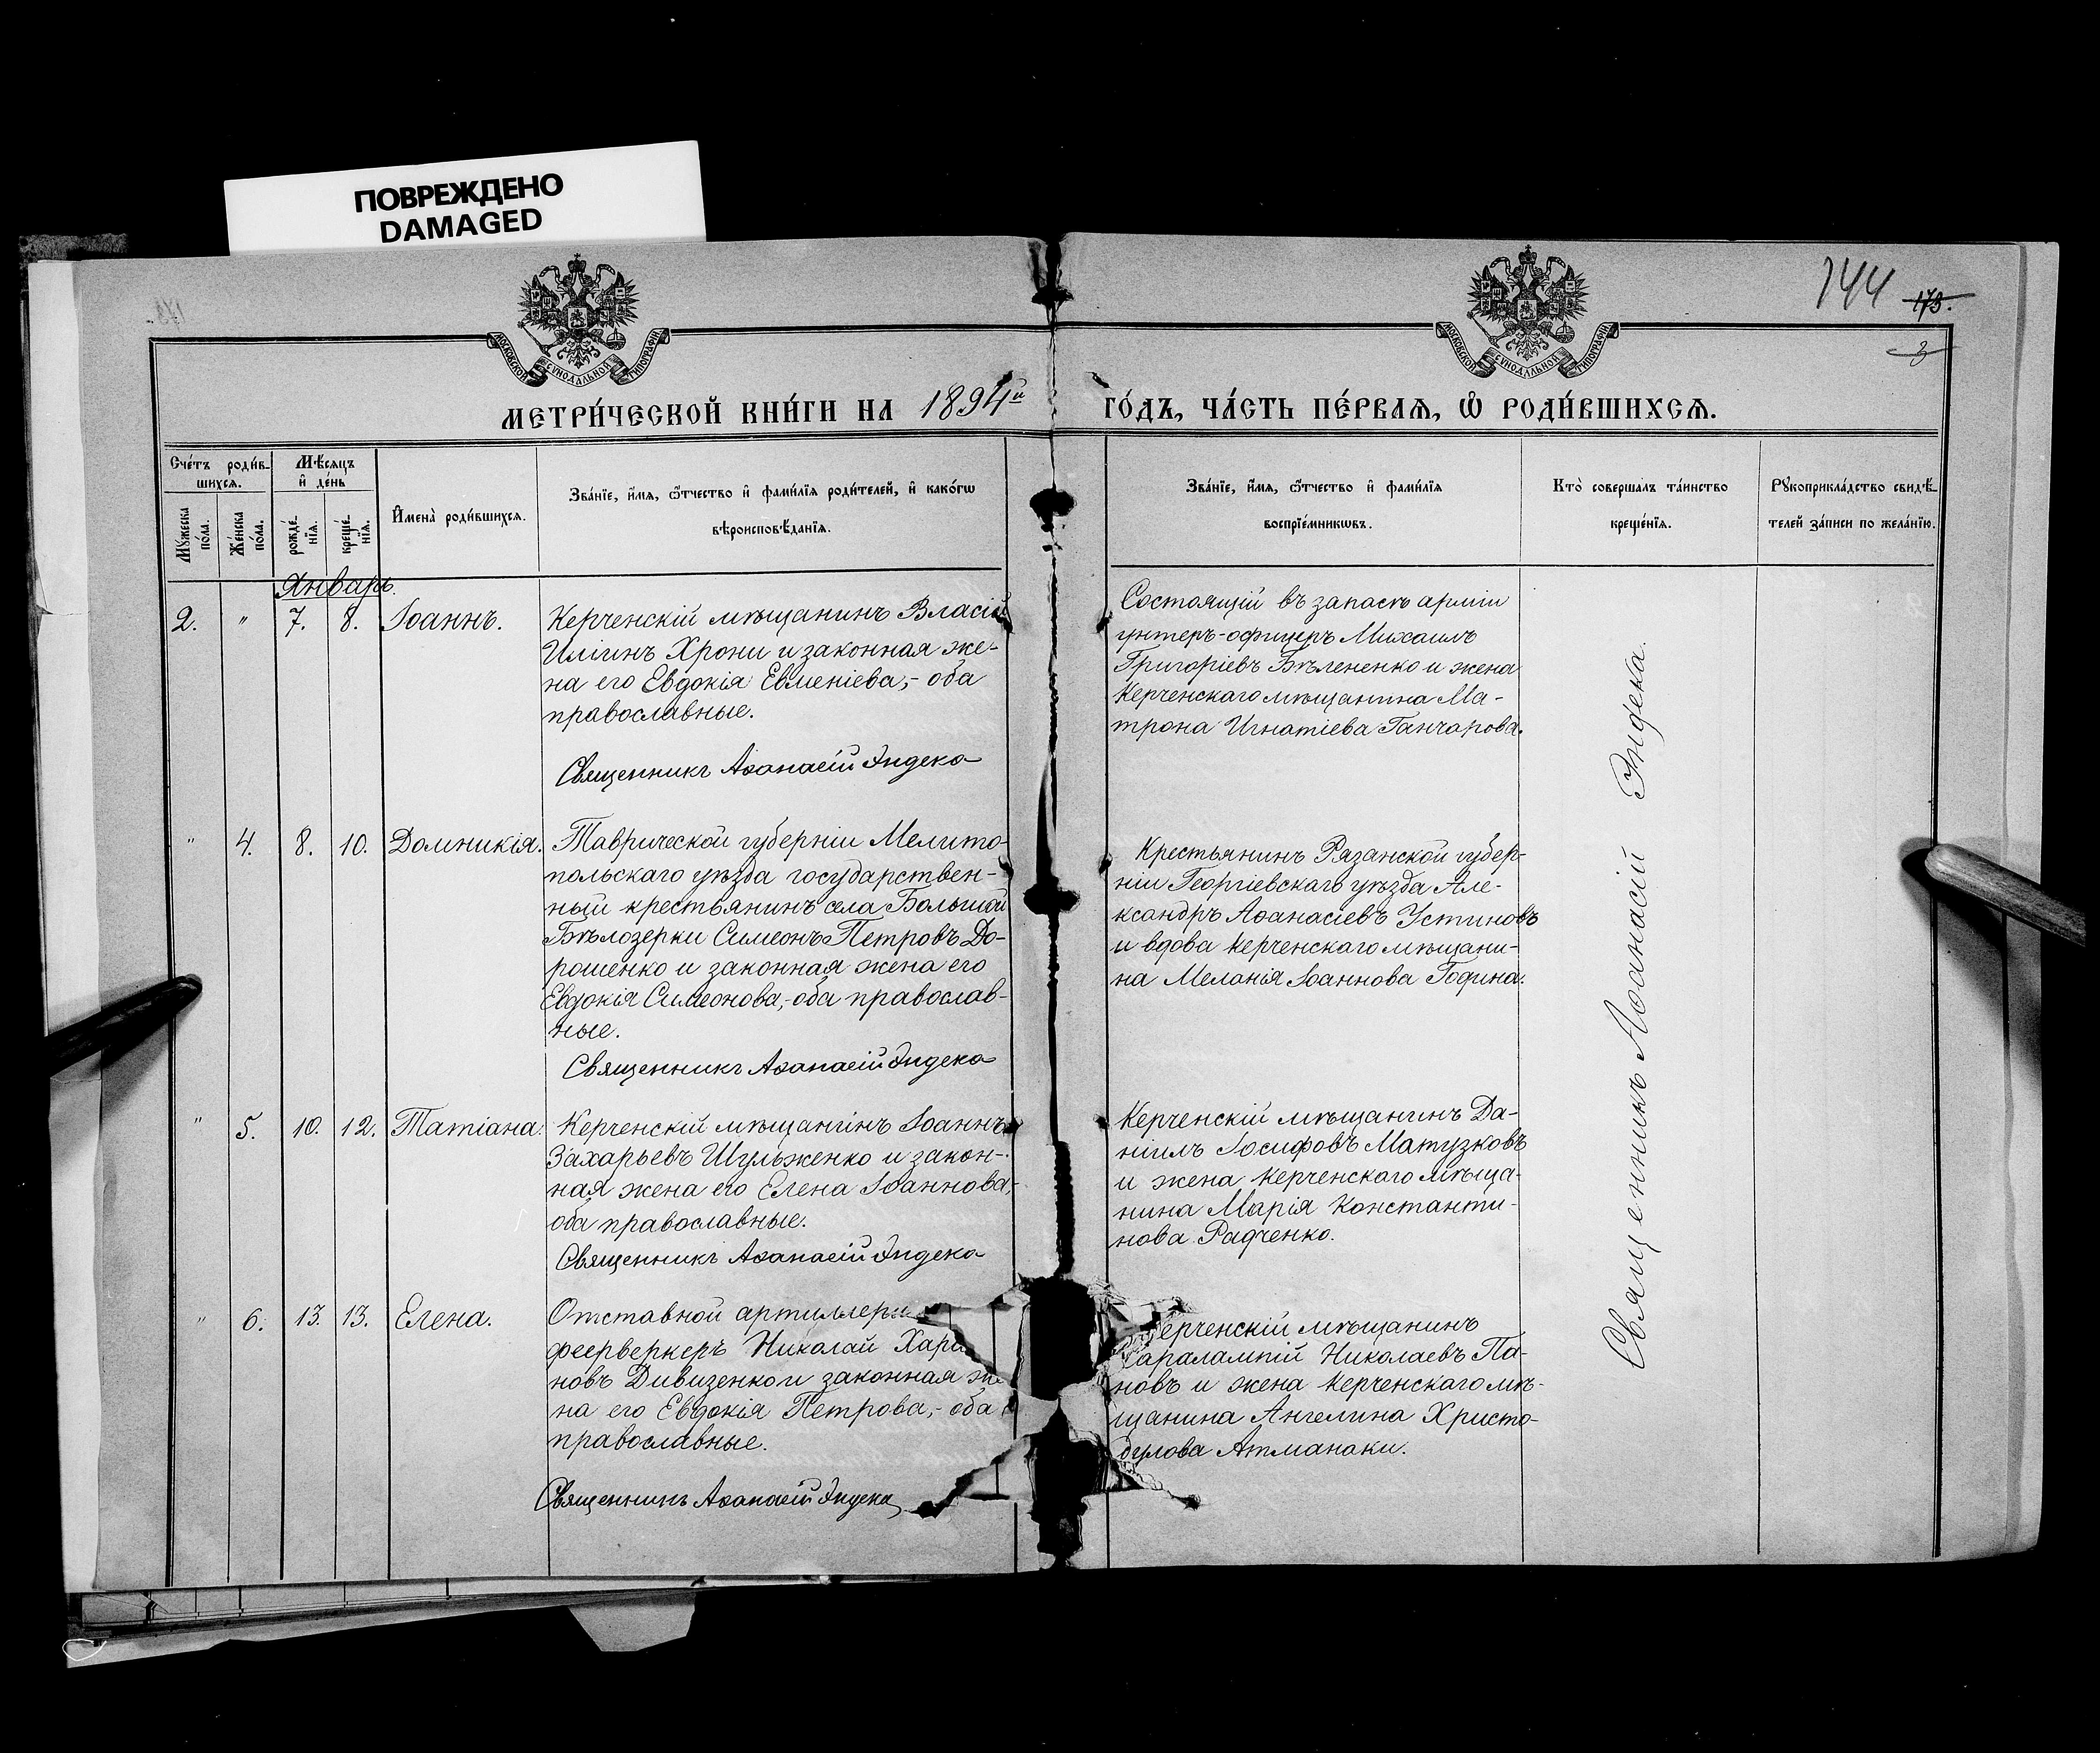 ПОВРЕЖДЕНО
DAMAGED
144 173.
3
МОСКОВСКОЙ СѴНОДАЛЬНОЙ ТИПОГРАФІИ
МОСКОВСКОЙ СѴНОДАЛЬНОЙ ТИПОГРАФІИ
МЕТРИ́ЧЕСКОЙ КНИ́ГИ НА 1894й ГО́ДЪ, ЧА́СТЬ ПЕ́РВАѦ, Ѡ РОДИ́ВШИХСѦ.
Сче́тъ роди́вшихсѧ.
Мꙋ́жеска по́ла.
Же́нска по́ла.
Мѣ́сѧцъ и҆ де́нь
рожде́нїѧ.
креще́нїѧ.
И҆мена̀ роди́вшихсѧ.
Зва́нїе, и҆́мѧ, ѻ҆́тчество и҆ фами́лїѧ роди́телей, и҆ како́гѡ
вѣроисповѣ́данїѧ.
Зва́нїе, и҆́мѧ, ѻ҆́тчество и҆ фами́лїѧ
воспрїе́мникѡвъ.
Кто̀ соверша́лъ та́инство
креще́нїѧ.
Рꙋкоприкла́дство свидѣ́-
телей за́писи по жела́нїю.
Январь.
2. " 7. 8. Іоаннъ.
Керченскій мѣщанинъ Власій
Иліинъ Хрони и законная же-
на его Евдокія Евменіева,- оба
православные.
Священникъ Аѳанасій Эндека
Состоящій въ запасѣ арміи
унтеръ-офицеръ Михаилъ
Григоріевъ Бѣлененко и жена
Керченскаго мѣщанина Ма-
трона Игнатіева Ганчарова.
" 4. 8. 10. Домникія.
Таврической губерніи Мелито-
польскаго уѣзда государствен-
ный крестьянинъ села Большой
Бѣлозерки Симеонъ Петровъ До-
рошенко и законная жена его
Евдокія Симеонова,- оба православ-
ные.
Священникъ Аѳанасій Эндека
Крестьянинъ Рязанской губер-
ніи Георгіевскаго уѣзда Але-
ксандръ Аѳанасіевъ Устиновъ
и вдова керченскаго мѣщани-
на Меланія Іоаннова Година.
" 5. 10. 12. Татіана.
Керченскій мѣщанинъ Іоаннъ
Захарьевъ Шульженко и закон-
ная жена его Елена Іоаннова,-
оба православные.
Священникъ Аѳанасій Эндека
Керченскій мѣщанинъ Да-
ніилъ Іосифовъ Матузковъ
и жена Керченскаго мѣща-
нина Марія Константи-
нова Радченко.
" 6. 13. 13. Елена.
Отставной артиллери
феерверкеръ Николай Хари
новъ Дивизенко и законная же
на его Евдокія Петрова,- оба
православные.
Священникъ Аѳанасій Эндека
ерченскій мѣщанинъ
Харалампій Николаевъ Па-
новъ и жена Керченскаго мѣ-
щанина Ангелина Христо-
дулова Атманаки.
Священникъ Аѳанасій Эндека.